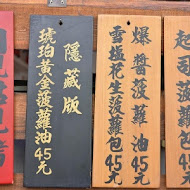 隱藏版
琥珀黃金菠蘿油45元
爆醬菠蘿油45元
雪鹽花生菠蘿包45元
起司菠蘿
45元